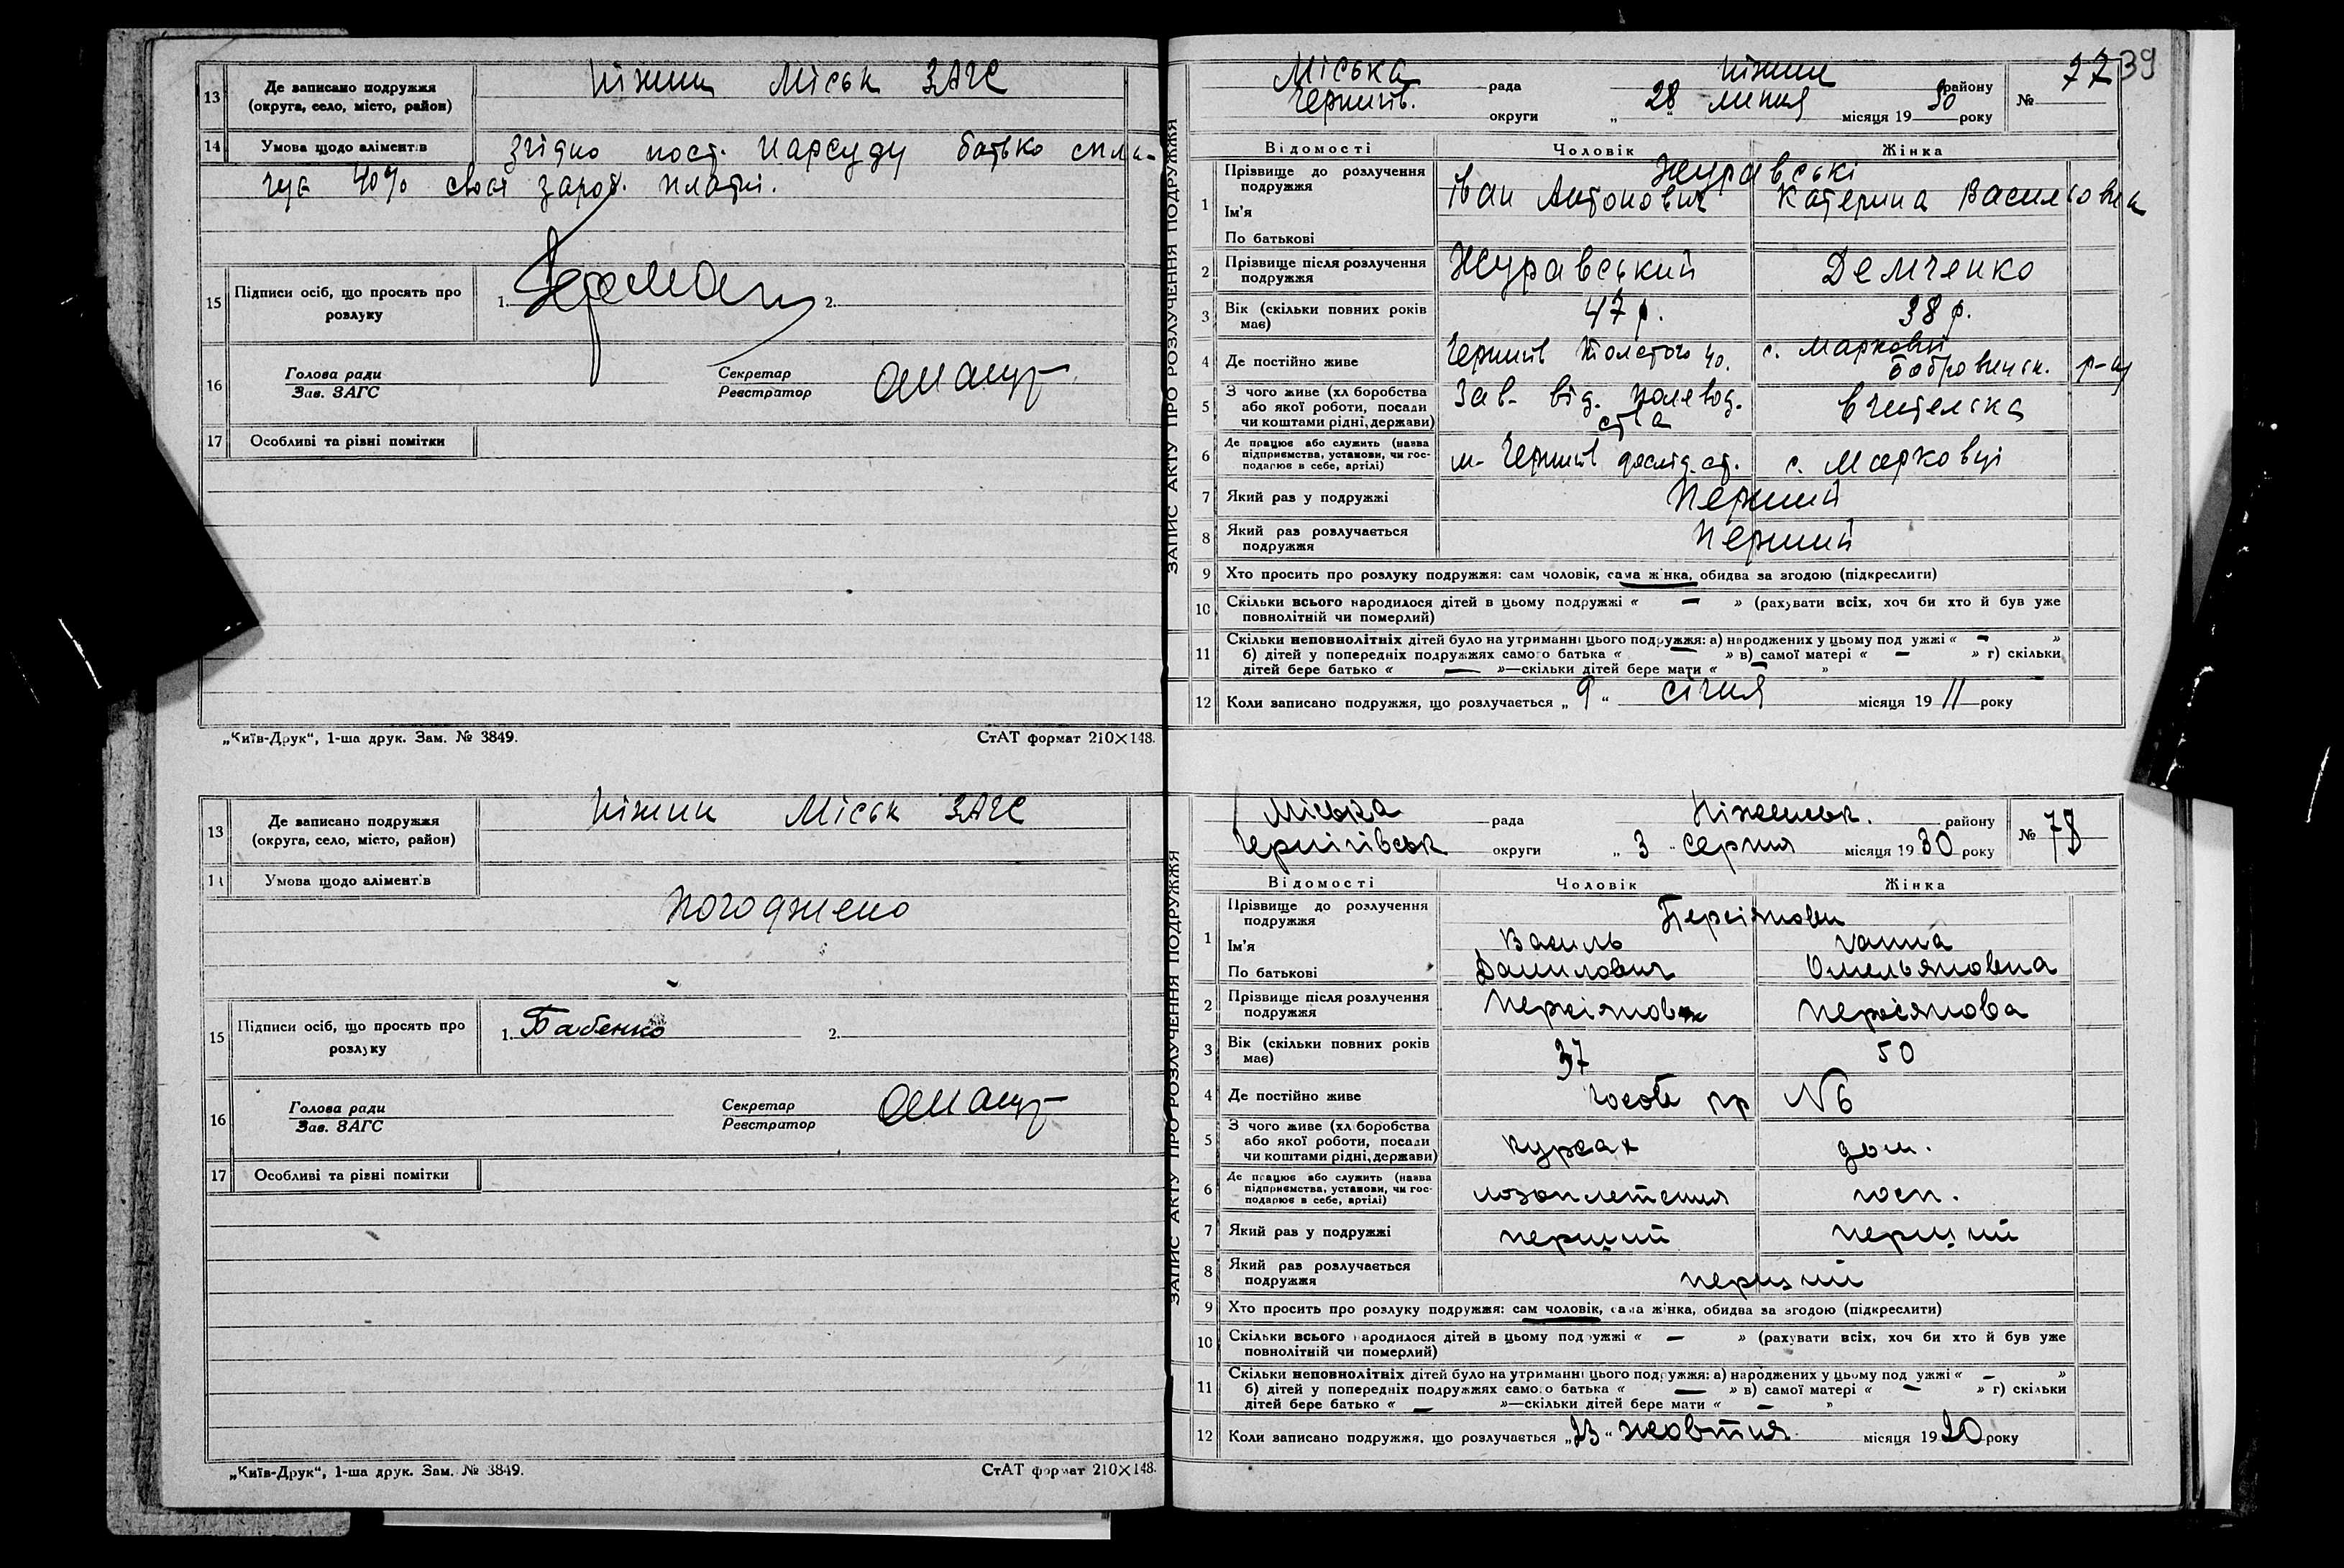 13 Де записано подружжя Ніжин Міськ ЗАГС
(округа, село, місто, район)
14 Умова щодо аліментів згідно пост. Нарсуду батько спла-
чує 40% своєї зароб. платні.
15 Підписи осіб, що просять про 1. 2.
розлуку
16 Голова ради Секретар
Зав. ЗАГС Реєстратор
17 Особливі та різні помітки
„Київ-Друк“, 1-ша друк. Зам. № 3849. СтАТ формат 210×148.
13 Де записано подружжя Ніжин Міськ ЗАГС
(округа, село, місто, район)
14 Умова щодо аліментів
Погоджено
15 Підписи осіб, що просять про 1. Бабенко 2.
розлуку
16 Голова ради Секретар
Зав. ЗАГС Реєстратор
17 Особливі та різні помітки
„Київ-Друк“, 1-ша друк. Зам. № 3849. СтАТ формат 210×148.
39
ЗАПИС АКТУ ПРО РОЗЛУЧЕННЯ ПОДРУЖЖЯ
Міська рада Ніжин району № 77
Чернигів. округи „28“ липня місяця 1930 року
Відомості Чоловік Жінка
1 Прізвище до розлучення Журавські
подружжя
Ім'я Іван Антонович Катерина Василовна
По батькові
2 Прізвище після розлучення Журавський Демченко
подружжя
3 Вік (скільки повних років 47 р. 38 р.
має)
4 Де постійно живе Чернигів Толстого 40. с. Марковці
Бобровицьк. р-ну
5 З чого живе (хл боробства Зав. від. полевод. вчителька
або якої роботи, посади ства
чи коштами рідні, держави)
6 Де працює або служить (назва м. Чернигів дослід. ст. с. Марковці
підприємства, установи, чи гос-
подарює в себе, артілі)
7 Який раз у подружжі Перший
8 Який раз розлучається Перший
подружжя
9 Хто просить про розлуку подружжя: сам чоловік, сама жінка, обидва за згодою (підкреслити)
10 Скільки всього народилося дітей в цьому подружжі « — » (рахувати всіх, хоч би хто й був уже
повнолітній чи померлий)
11 Скільки неповнолітніх дітей було на утриманні цього подружжя: а) народжених у цьому подружжі « — »
б) дітей у попередніх подружжях самого батька « — » в) самої матері « — » г) скільки
дітей бере батько « — »—скільки дітей бере мати « — »
12 Коли записано подружжя, що розлучається „9“ січня місяця 1911 року
ЗАПИС АКТУ ПРО РОЗЛУЧЕННЯ ПОДРУЖЖЯ
Міська рада Ніжинськ. району № 78
Чернігівськ округи „3“ серпня місяця 1930 року
Відомості Чоловік Жінка
1 Прізвище до розлучення Персіянови
подружжя
Ім'я Василь Ганна
По батькові Данилович Омельяновна
2 Прізвище після розлучення Персіянов Персіянова
подружжя
3 Вік (скільки повних років 37 50
має)
4 Де постійно живе пр №6
5 З чого живе (хл боробства курсах дом.
або якої роботи, посади
чи коштами рідні, держави)
6 Де працює або служить (назва лозоплетення госп.
підприємства, установи, чи гос-
подарює в себе, артілі)
7 Який раз у подружжі перший перший
8 Який раз розлучається перший
подружжя
9 Хто просить про розлуку подружжя: сам чоловік, сама жінка, обидва за згодою (підкреслити)
10 Скільки всього народилося дітей в цьому подружжі « — » (рахувати всіх, хоч би хто й був уже
повнолітній чи померлий)
11 Скільки неповнолітніх дітей було на утриманні цього подружжя: а) народжених у цьому подружжі « — »
б) дітей у попередніх подружжях самого батька « — » в) самої матері « — » г) скільки
дітей бере батько « — »—скільки дітей бере мати « — »
12 Коли записано подружжя, що розлучається „23“ жовтня місяця 1920 року